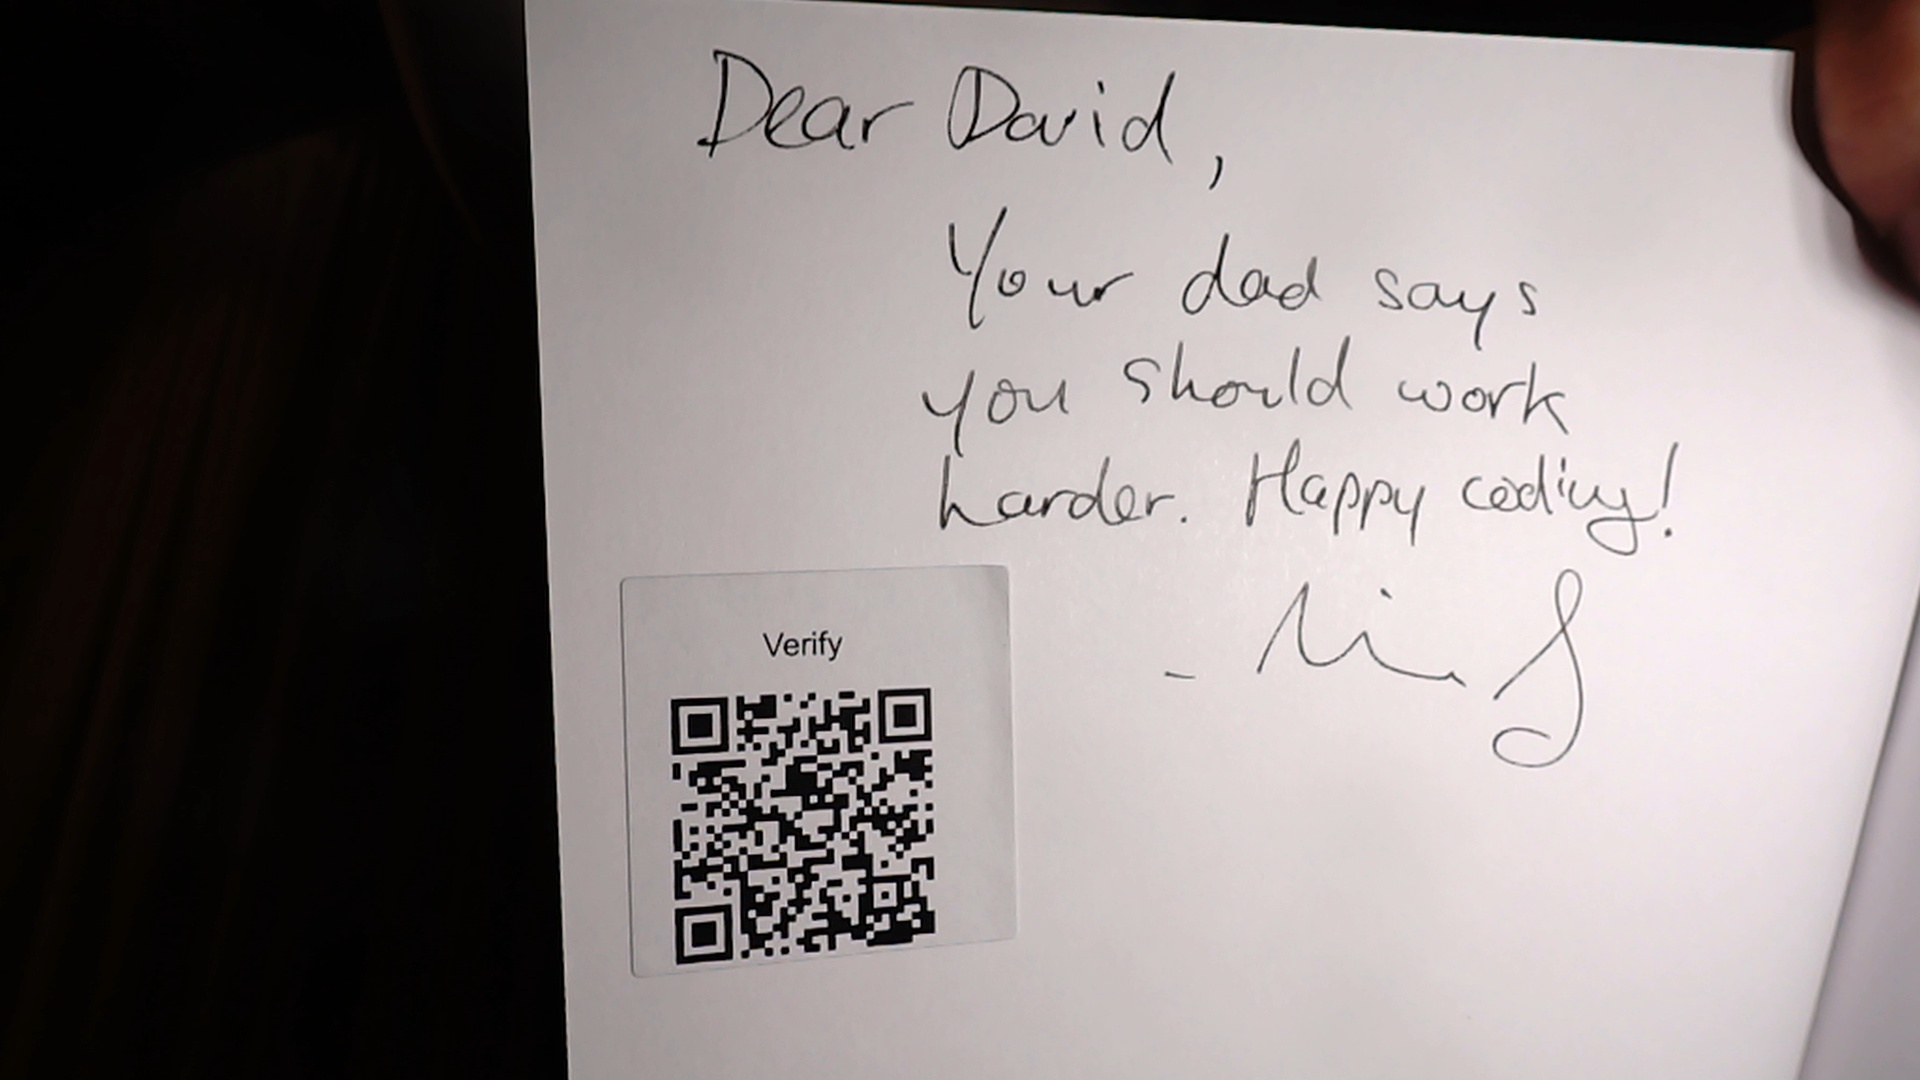 Dear David,
Your dad says
you should work
harder. Happy coding!
Verify